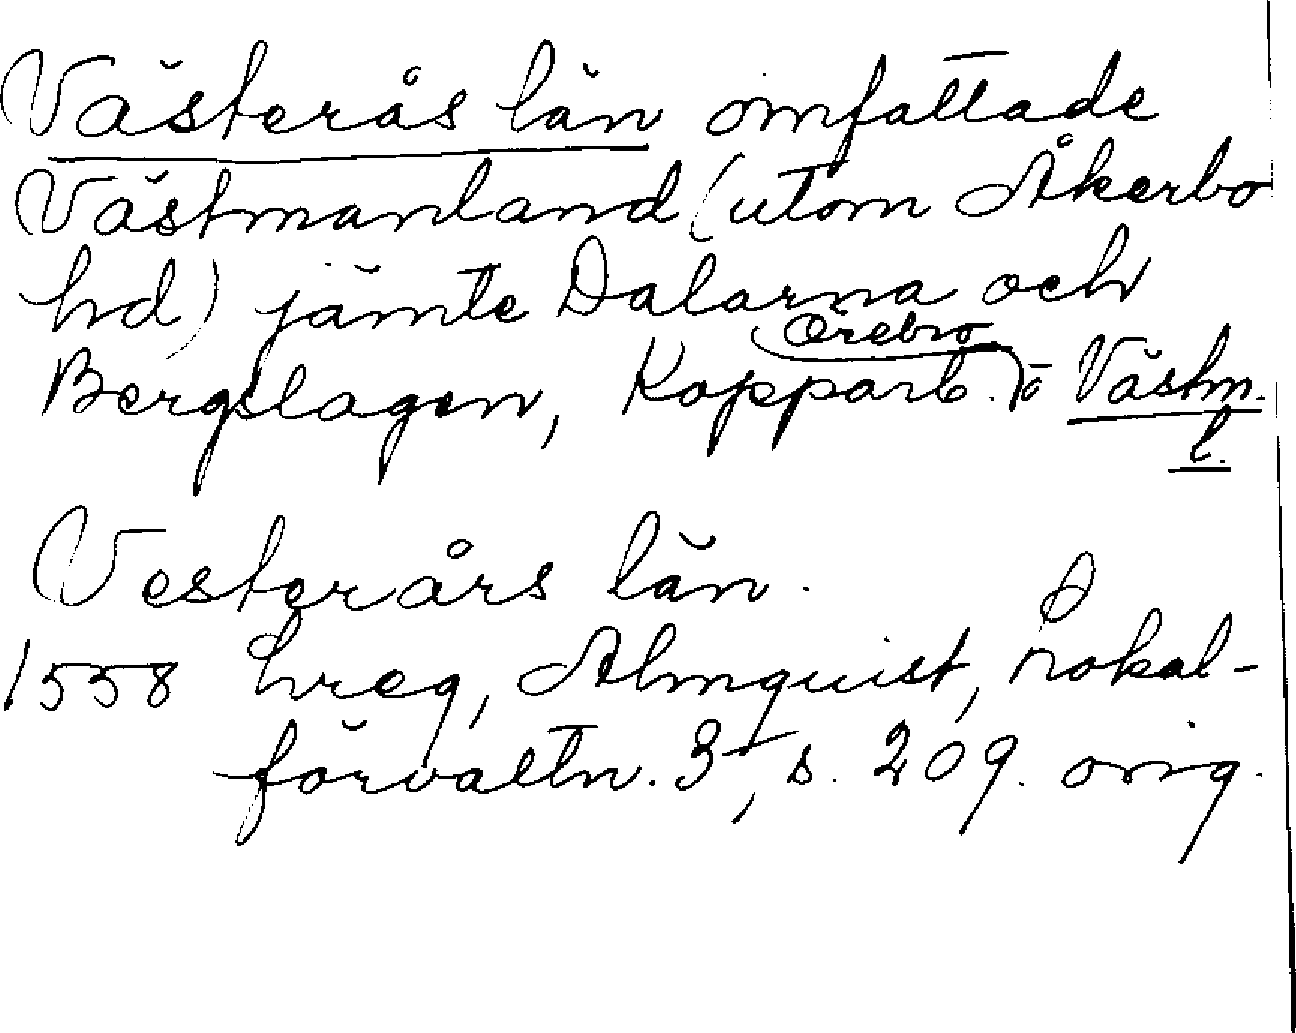 Västerås län omfattade
Västmanland (utom Åkerbo
hd) jämte Dalarna och
Örebro
Bergslagen, Kopparb. o Västm.
l.
Vesterårs län.
1558 hreg, Almquist, Lokal-
förvaltn. 3, s. 209. orig.